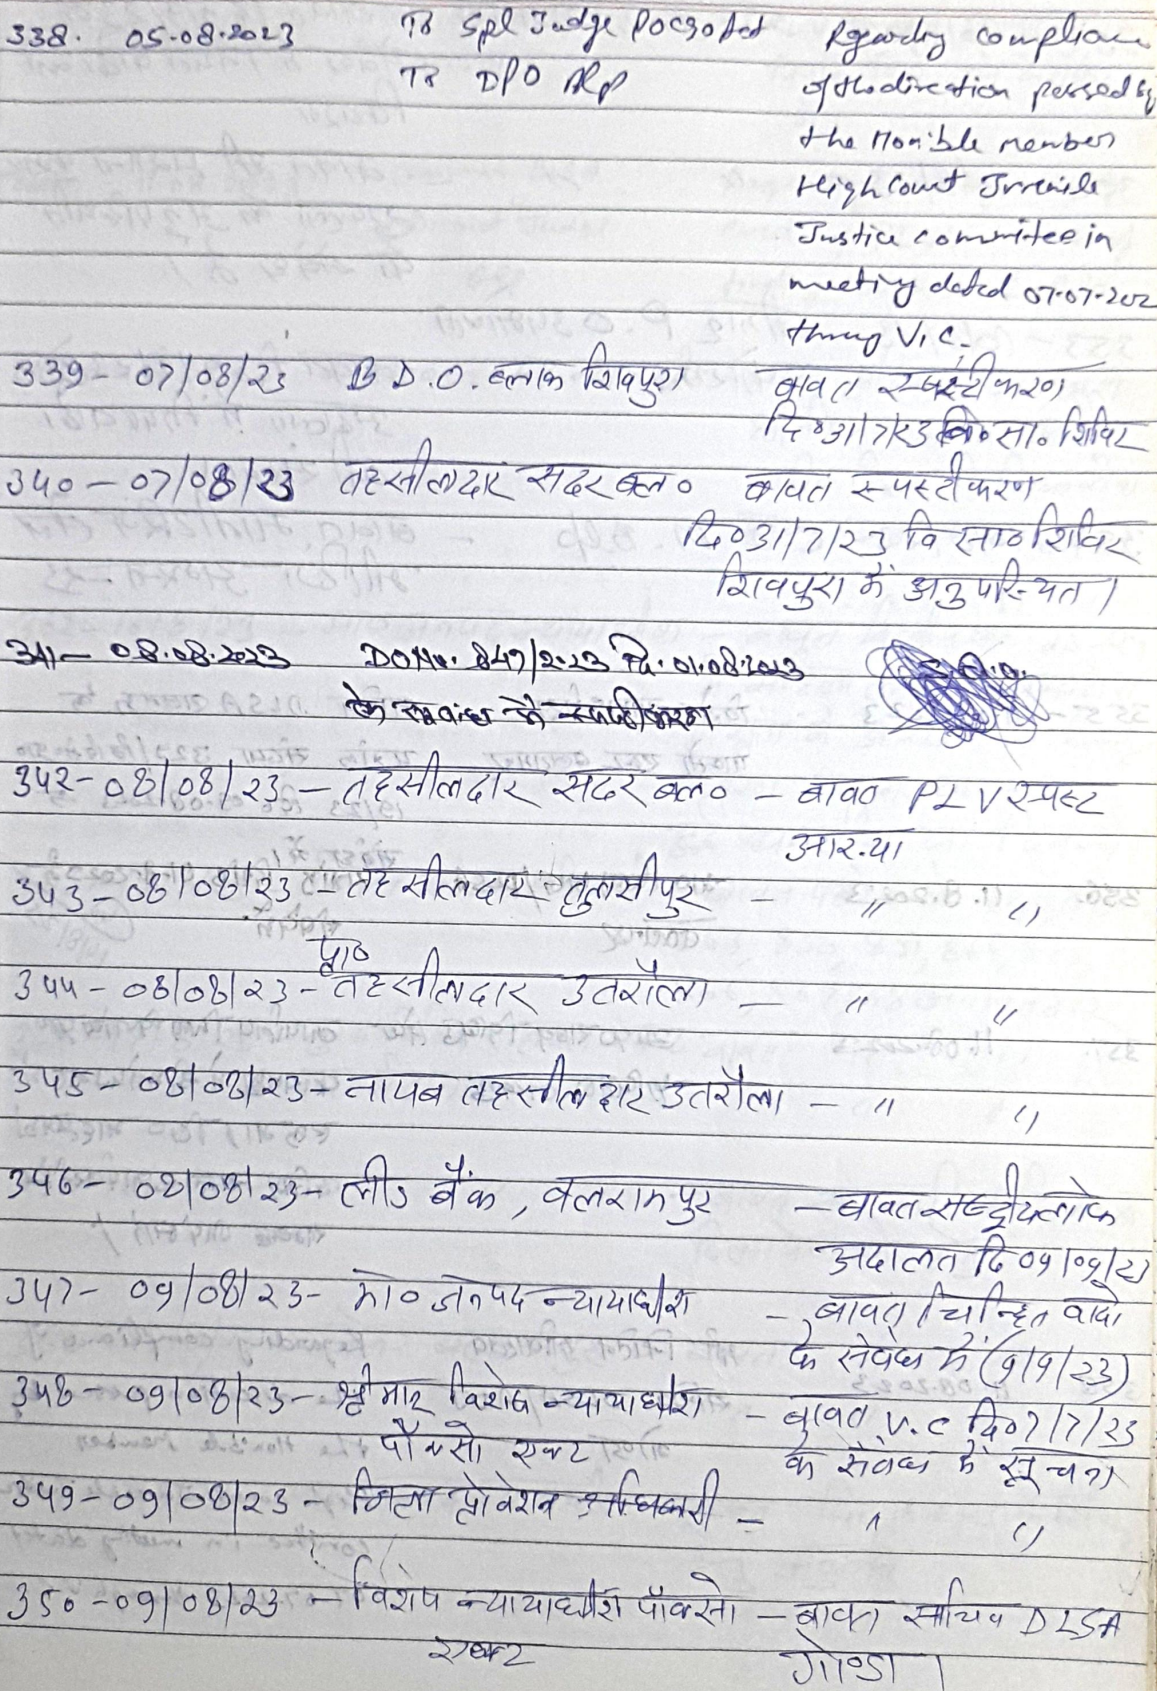 338. 05.08.2023 To Spl Judge Pocso Act Regarding Complianc
To DPO Blp of the direction passed by
the Hon'ble member
High Court Juvenile
Justice committee in
meeting dated 07.07.202
throug V.C.
339 - 07/08/23 B.D.O. ब्लाक शिवपुरा बावत स्पष्टीकरण
दि० 31/7/23 वि० सा० शिविर
340 - 07/08/23 तहसीलदार सदर बल० बावत स्पस्टीकरण
दि० 31/7/23 वि सा० शिविर
शिवपुरा में अनुपस्थित।
341 - 08.08.2023 DO No. 847/2023 दि. 01.08.2023
के सम्बन्ध में स्पष्टीकरण
342 - 08/08/23 - तहसीलदार सदर बल० - बावत PLV स्पस्ट
आख्या
343 - 08/08/23 - तहसीलदार तुलसीपुर - " "
344 - 08/08/23 - तहसीलदार उतरौला - " "
345 - 08/08/23 - नायब तहसीलदार उतरौला - " "
346 - 08/08/23 - लीड बैंक, बलरामपुर - बावत राष्ट्रीय लोक
अदालत दि 09/09/2
347 - 09/08/23 - मा० जनपद न्यायाधीश - बावत चिन्हित वादो
के संबंध में (9/9/23)
348 - 09/08/23 - श्रीमान विशेष न्यायाधीश - बावत V.C दि० 7/7/23
पॉक्सो एक्ट के संबंध में सूचना
349 - 09/08/23 - जिला प्रोवेशन अधिकारी - " "
350 - 09/08/23 - विशेष न्यायाधीश पॉक्सो - बावत सचिव DLSA
एक्ट गोण्डा।